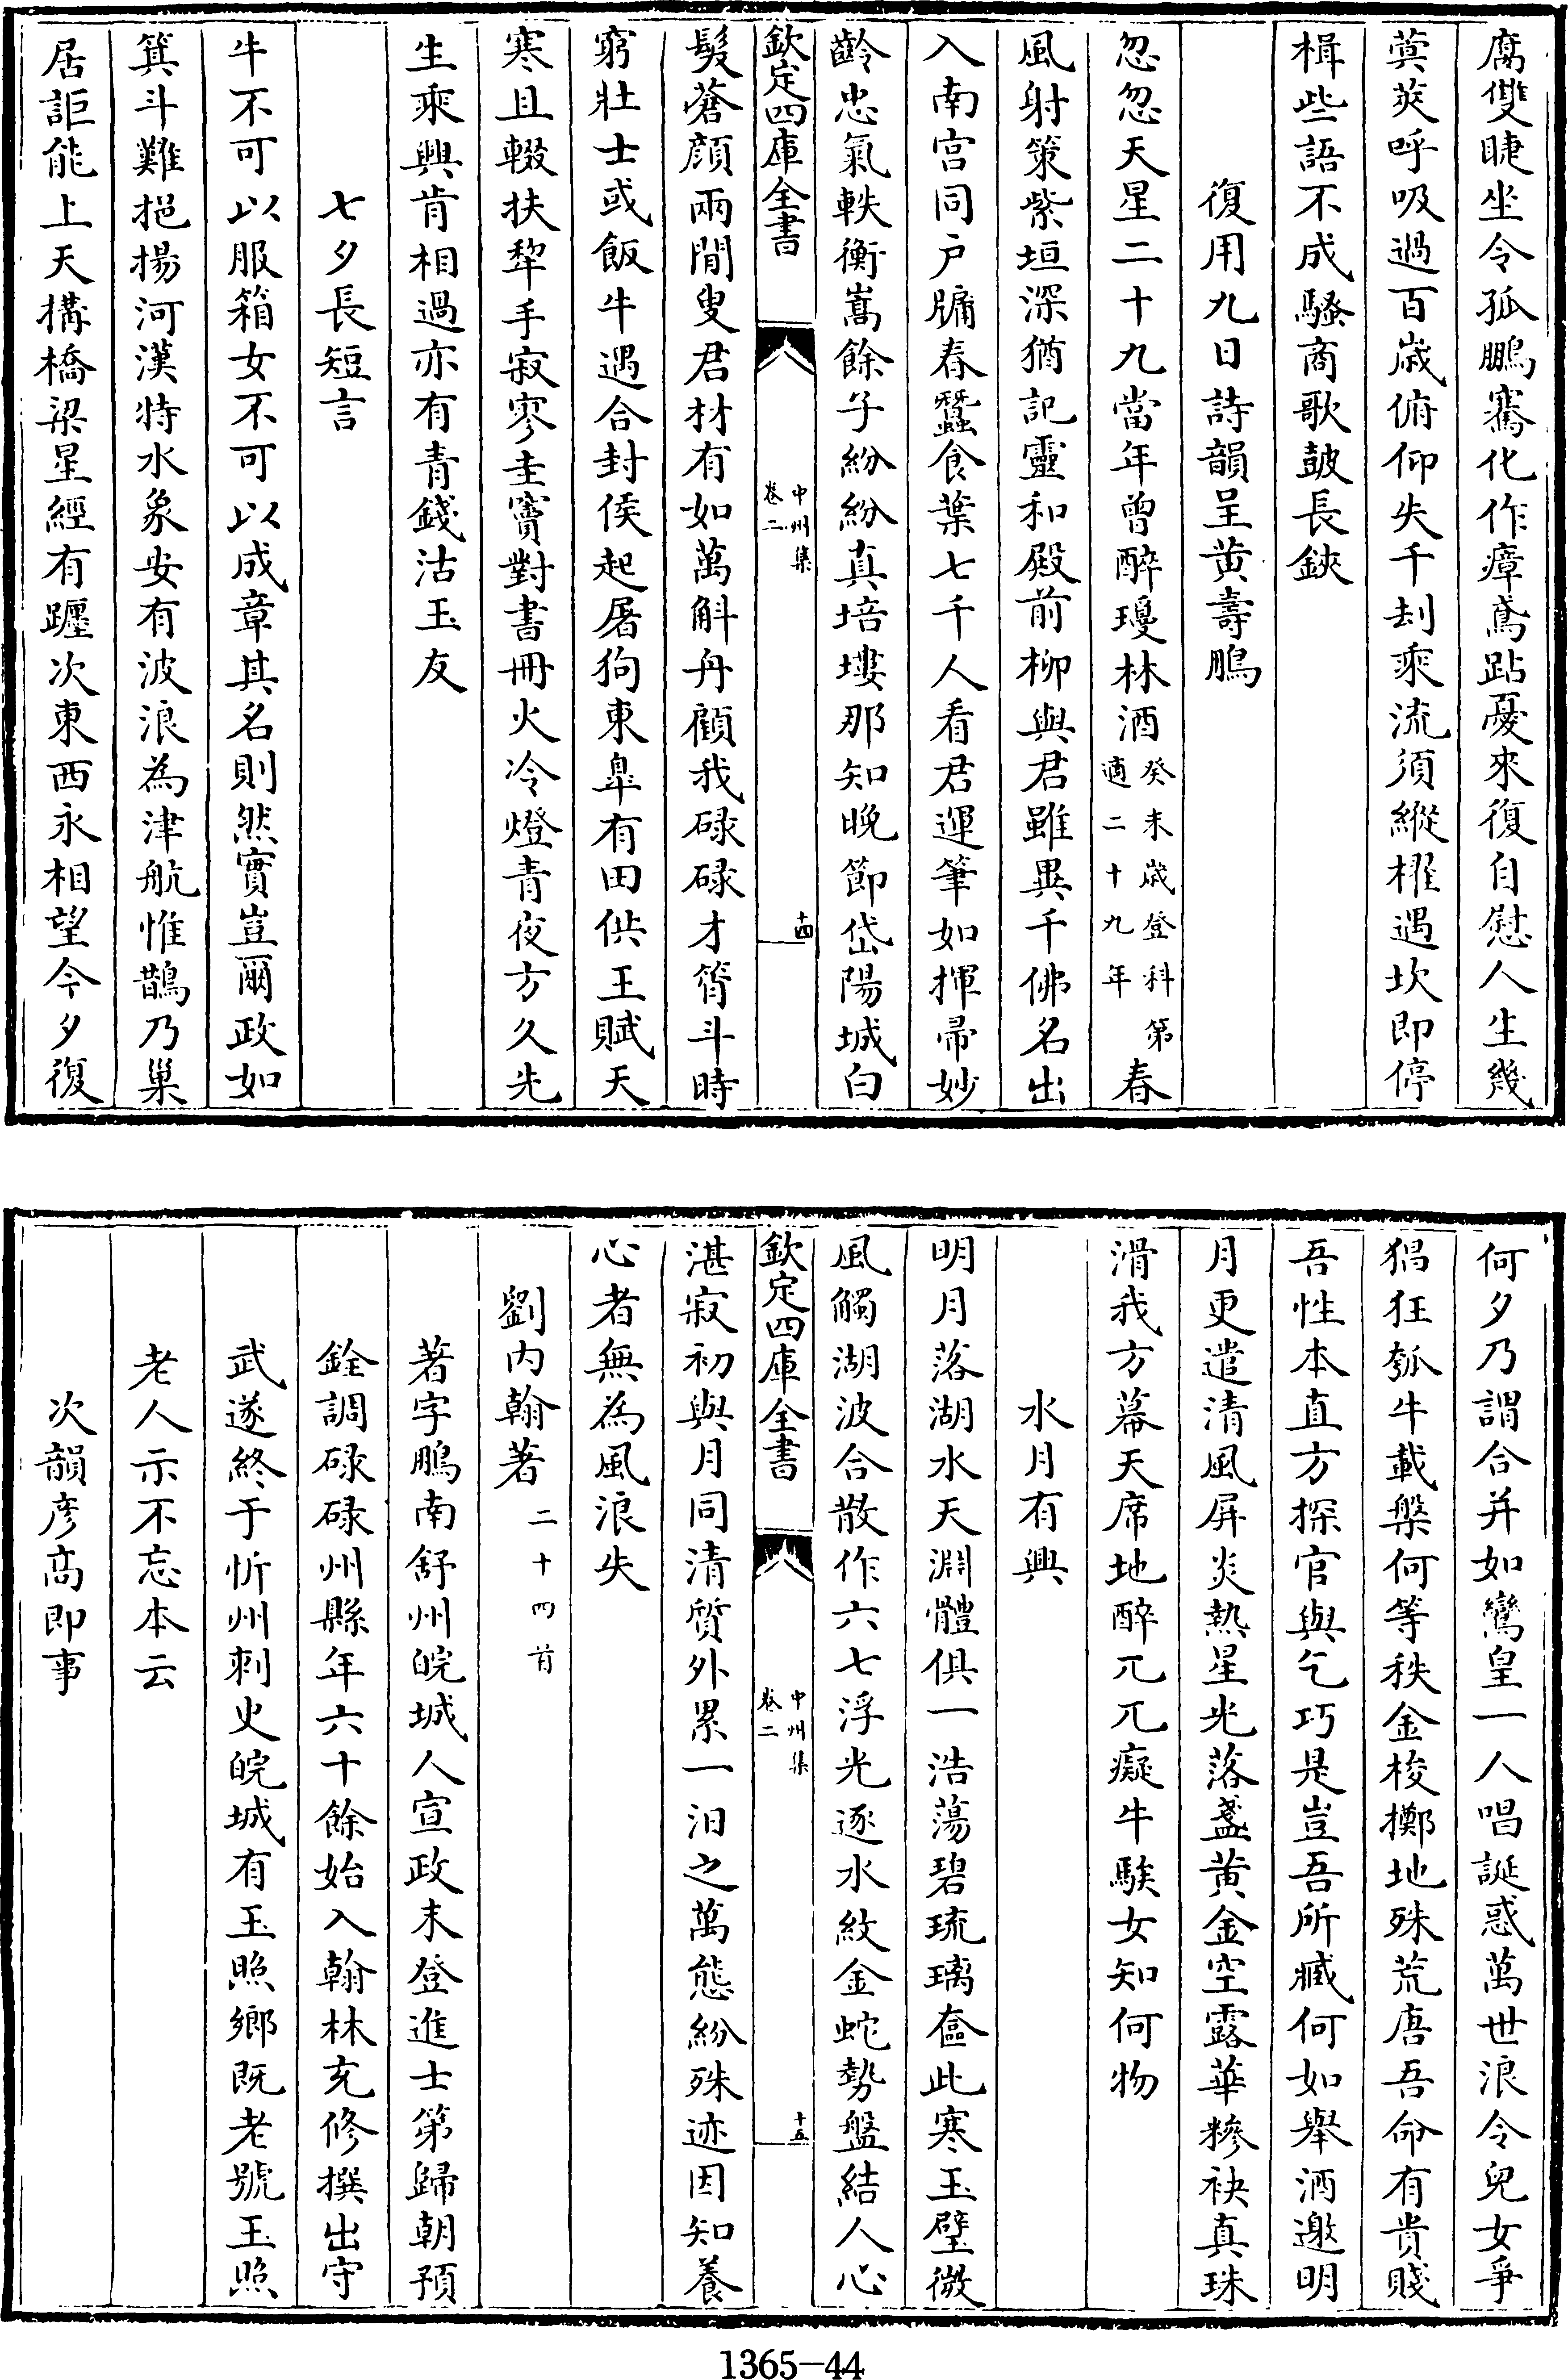 腐雙睫坐令孤鵬騫化作瘴鳶跕憂來復自慰人生幾
蓂莢呼吸過百歲俯仰失千刦乘流須縱櫂遇坎即停
楫些語不成騷商歌鼓長鋏
復用九日詩韻呈黄壽鵬
忽忽天星二十九當年曾醉瓊林酒癸未歲登科第適二十九年春
風射策紫垣深猶記靈和殿前柳與君雖異千佛名出
入南宫同户牗春蠶食葉七千人看君運筆如揮帚妙
齡忠氣軼衡嵩餘子紛紛真培塿那知晚節岱陽城白
欽定四庫全書
中州集
卷二
十四
髮蒼顔兩閒叟君材有如萬斛舟顧我碌碌才筲斗時
窮壯士或飯牛遇合封侯起屠狗東臯有田供王賦天
寒且輟扶犂手寂寥圭竇對書冊火冷燈青夜方久先
生乘興肯相過亦有青錢沽玉友
七夕長短言
牛不可以服箱女不可以成章其名則然實豈爾政如
箕斗難挹揚河漢特水象安有波浪為津航惟鵲乃巢
居詎能上天構橋梁星經有躔次東西永相望今夕復
何夕乃謂合并如鸞皇一人唱誕惑萬世浪令兒女爭
猖狂瓠牛載槃何等秩金梭擲地殊荒唐吾命有貴賤
吾性本直方探官與乞巧是豈吾所臧何如舉酒邀明
月更遣清風屏炎熱星光落盞黄金空露華糝袂真珠
滑我方幕天席地醉兀兀癡牛騃女知何物
水月有興
明月落湖水天淵體俱一浩蕩碧琉璃奩此寒玉璧微
風觸湖波合散作六七浮光逐水紋金蛇勢盤結人心
欽定四庫全書
中州集
卷二
十五
湛寂初與月同清質外累一汨之萬態紛殊迹因知養
心者無為風浪失
劉内翰著二十四首
著字鵬南舒州皖城人宣政末登進士第歸朝預
銓調碌碌州縣年六十餘始入翰林充修撰出守
武遂終于忻州刺史皖城有玉照鄉既老號玉照
老人示不忘本云
次韻彦高即事
1365-44